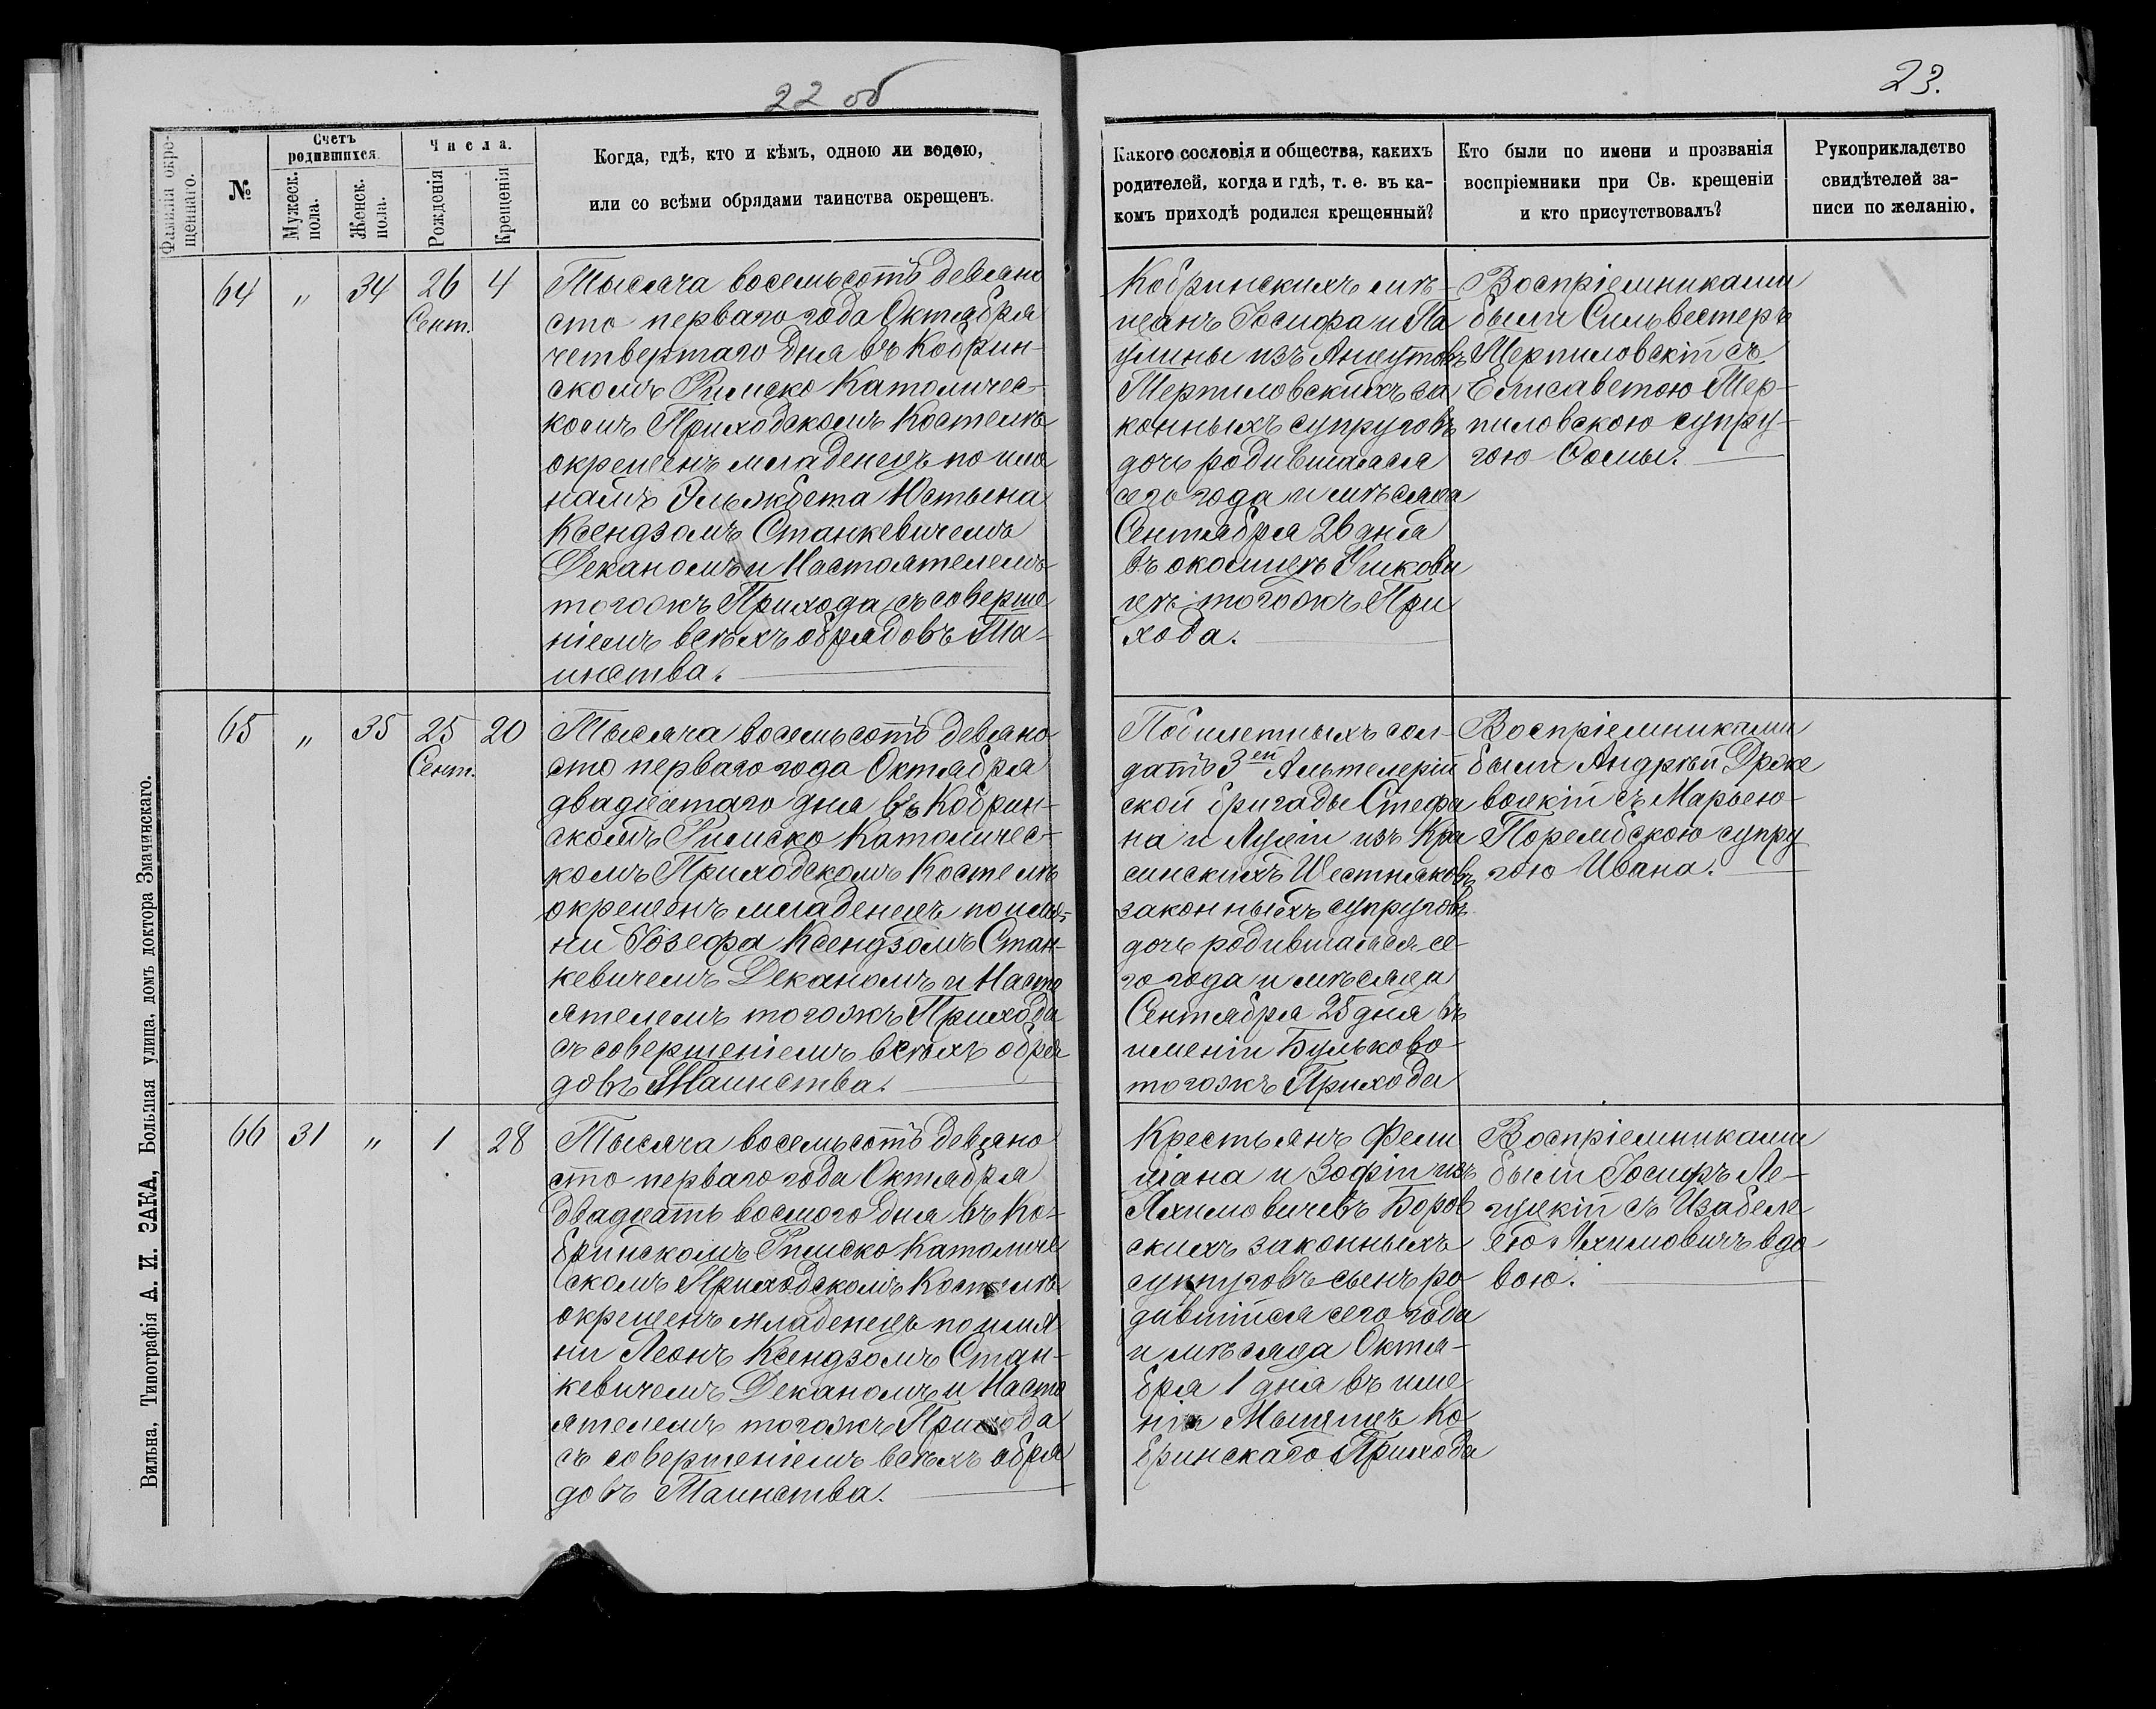 22 об
23.
Фамилія окрещеннаго.
№
Счетъ родившихся.
Мужеск. пола.
Женск. пола.
Числа.
Рожденія
Крещенія
Когда, гдѣ, кто и кѣмъ, одною ли водою,
или со всѣми обрядами таинства окрещенъ.
Какого сословія и общества, какихъ
родителей, когда и гдѣ, т. е. въ ка-
комъ приходѣ родился крещенный?
Кто были по имени и прозванія
воспріемники при Св. крещеніи
и кто присутствовалъ?
Рукоприкладство
свидѣтелей за-
писи по желанію.
64 " 34 26 4
Сент.
Тысяча восемьсотъ девяно
сто перваго года Октября
четвертаго дня въ Кобрин-
скомъ Римско Католичес-
комъ Приходскомъ Костелѣ
окрещенъ младенецъ по име
намъ Эльжбета Юстына
Ксендзомъ Станкевичемъ
Деканомъ и Настоятелемъ
тогожъ Прихода, съ соверше
ніемъ всѣхъ обрядовъ Та-
инства.
Кобринскихъ мѣ-
щанъ Іосифа и Па
улины изъ
Терпиловскихъ за
конныхъ супруговъ
дочь родившаяся
сего года и мѣсяца
Сентября 26 дня
въ околицѣ
тогожъ При
хода.
Воспріемниками
были Сильвестеръ
Терпиловскій съ
Елисаветою Тер-
пиловскою супру-
гою Ѳомы.
65 " 35 25 20
Сент.
Тысяча восемьсотъ девяно
сто перваго года Октября
двадцатаго дня въ Кобрин-
скомъ Римско Католичес-
комъ Приходскомъ Костелѣ
окрещенъ младенецъ по име-
ни Іозефа Ксендзомъ Стан-
кевичемъ Деканомъ и Насто
ятелемъ тогожъ Прихода
съ совершеніемъ всѣхъ обря
довъ Таинства.
Побилетныхъ сол-
датъ 3ей Альтелерій
ской бригады Стефа
на и Луціи изъ Кра
синскихъ Шестяковъ
законныхъ супруговъ
дочь родившаяся се-
го года и мѣсяца
Сентября 25 дня въ
именіи Бульково
тогожъ Прихода
Воспріемниками
были Андрей Држе
вецкій съ Марьею
Порембскою супру
гою Ивана.
66 31 " 1 28
Тысяча восемьсотъ девяно
сто перваго года Октября
двадцать восмого дня въ Ко-
бринскомъ Римско Католиче
скомъ Приходскомъ Костелѣ
окрещенъ младенецъ по имя
ни Леонъ Ксендзомъ Стан-
кевичемъ Деканомъ и Насто
ятелемъ тогожъ Прихода
съ совершеніемъ всѣхъ обря
довъ Таинства.
Крестьянъ Фели
ціана и Зофіи изъ
Яхимовичевъ Боров
скихъ законныхъ
супруговъ сынъ ро
дившійся сего года
и мѣсяца Октя-
бря 1 дня въ име
ніи Ко
бринскаго Прихода
Воспріемниками
были Іосифъ Ле-
гуцкій съ Изабел-
ею Яхимовичъ вдо
вою.
Вильна, Типографія А. И. ЗАКА, Большая улица, домъ доктора Змачинскаго.